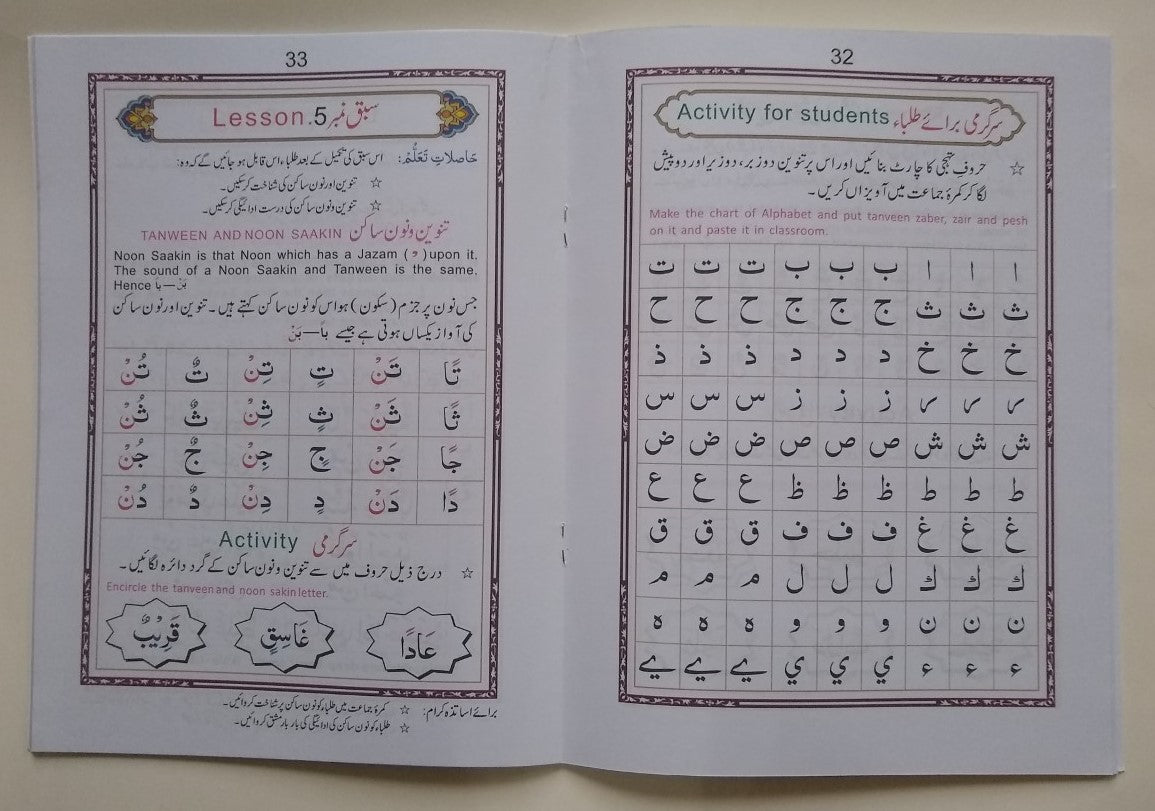 32
Activity for students سرگرمی برائے طلباء
☆ حروفِ تہجی کا چارٹ بنائیں اور اس پر تنوین دو زبر، دو زیر اور دو پیش
لگا کر کمرۂ جماعت میں آویزاں کریں۔
Make the chart of Alphabet and put tanveen zaber, zair and pesh
on it and paste it in classroom.
ا ا ا ب ب ب ت ت ت
ث ث ث ج ج ج ح ح ح
خ خ خ د د د ذ ذ ذ
ر ر ر ز ز ز س س س
ش ش ش ص ص ص ض ض ض
ط ط ط ظ ظ ظ ع ع ع
غ غ غ ف ف ف ق ق ق
ك ك ك ل ل ل م م م
ن ن ن و و و ه ه ه
ء ء ء ي ي ي ے ے ے
33
Lesson.5 سبق نمبر
حَاصلاتِ تَعَلُّمْ: اس سبق کی تکمیل کے بعد طلباء اس قابل ہو جائیں گے کہ وہ:
☆ تنوین اور نون ساکن کی شناخت کر سکیں۔
☆ تنوین و نون ساکن کی درست ادائیگی کر سکیں۔
TANWEEN AND NOON SAAKIN تنوین و نون ساکن
Noon Saakin is that Noon which has a Jazam ( ۡ ) upon it.
The sound of a Noon Saakin and Tanween is the same.
Hence بَنْ—بًا
جس نون پر جزم (سکون) ہو اس کو نون ساکن کہتے ہیں۔ تنوین اور نون ساکن
کی آواز یکساں ہوتی ہے جیسے بًا—بَنْ
تًا تَنْ تٍ تِنْ تٌ تُنْ
ثًا ثَنْ ثٍ ثِنْ ثٌ ثُنْ
جًا جَنْ جٍ جِنْ جٌ جُنْ
دًا دَنْ دٍ دِنْ دٌ دُنْ
Activity سرگرمی
☆ درج ذیل حروف میں سے تنوین و نون ساکن کے گرد دائرہ لگائیں۔
Encircle the tanveen and noon sakin letter.
عَادًا غَاسِقٍ قَرِيْبٌ
برائے اساتذہ کرام: ☆ کمرۂ جماعت میں طلباء کو نون ساکن پر شناخت کروائیں۔
☆ طلباء کو نون ساکن کی ادائیگی کی بار بار مشق کروائیں۔